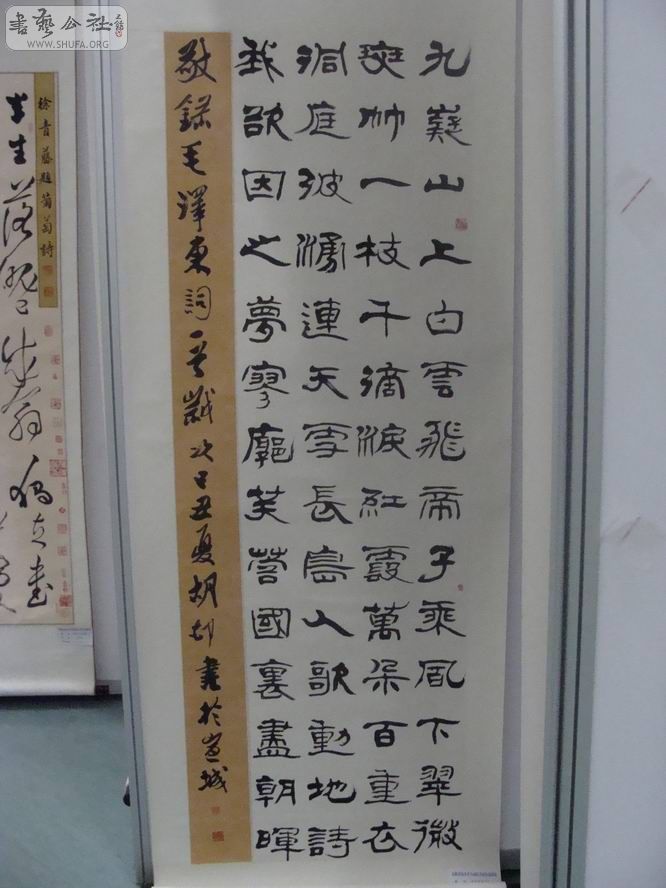 書藝公社
WWW.SHUFA.ORG
九嶷山上白雲飛帝子乘風下翠微
斑竹一枝千滴淚紅霞萬朵百重衣
洞庭波湧連天雪長島人歌動地詩
我欲因之夢寥廓芙蓉國裏盡朝暉
敬錄毛澤東詞一首歲次己丑夏胡書於宣城
徐青藤題葡萄詩
半生落魄已成翁獨立書